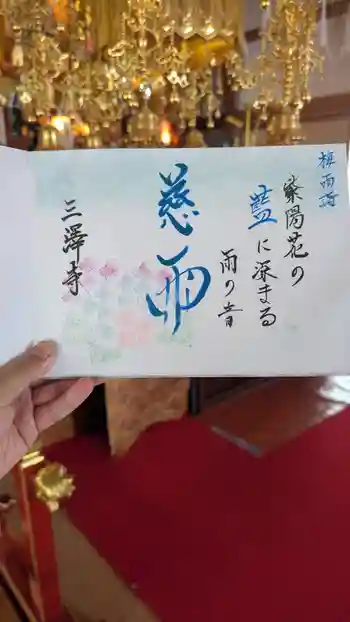 梅雨詣
紫陽花の
藍に深まる
雨の音
慈雨
三澤寺